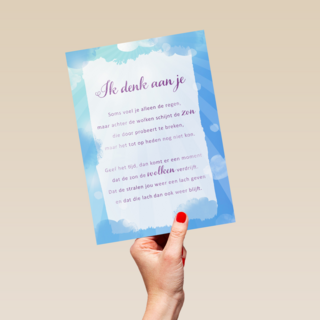 Ik denk aan je
Soms voel je alleen de regen,
Maar achter de wolken schijnt de zon
die door probeert te breken,
Maar het tot op heden nog niet kon.
Geef het tijd, dan komt er een moment
dat de zon de wolken verdrijft.
Dat de stralen jou weer een lach geven
en dat die lach dan ook weer blijft.